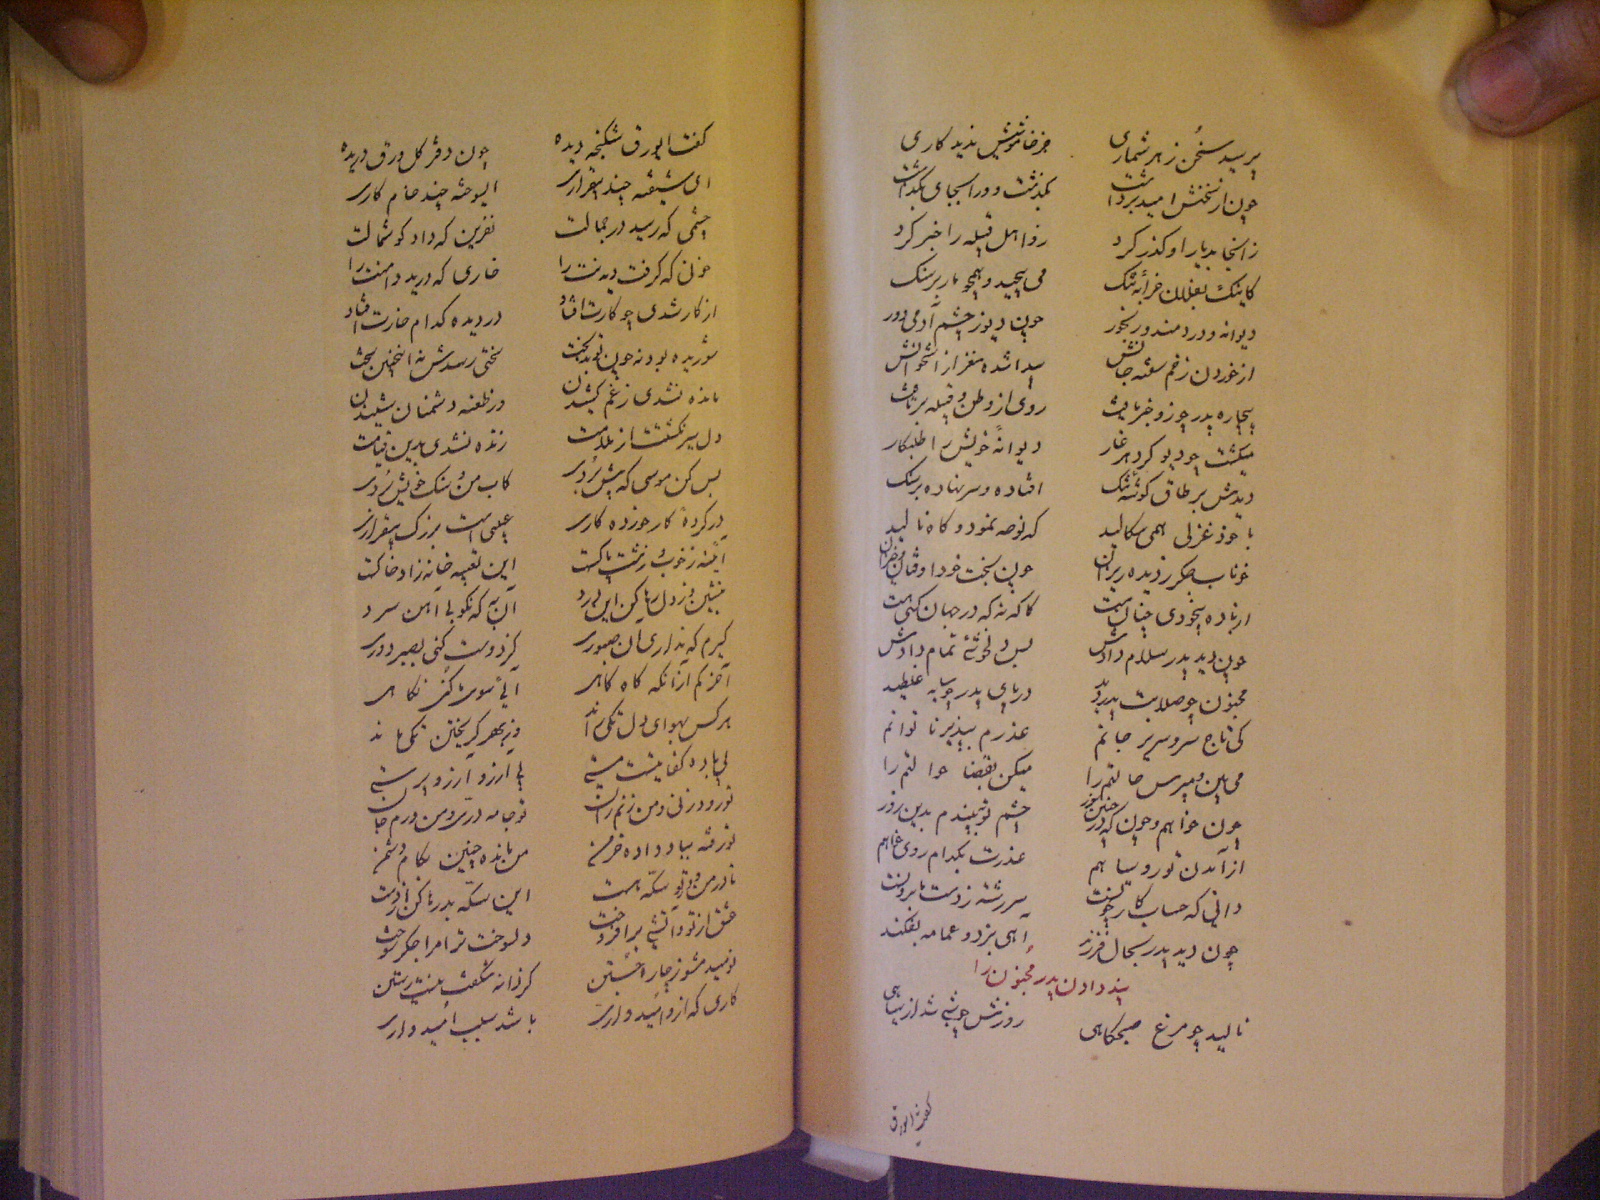 پرسید سخن ز هر شماری جز خامشیش ندید کاری
چون از سخنش امید برداشت بگذشت و ورا بجای بگذاشت
زانجا بدیار او گذر کرد زو اهل قبیله را خبر کرد
کاینک بفلان خرابهٔ تنک می پیچد و همچو مار بر سنک
دیوانه و دردمند و رنجور چون دیو ز چشم آدمی دور
از خوردن زخم سفته جانش پیدا شده مغز از استخوانش
بیچاره پدر چو زو خبر یافت روی از وطن و قبیله برتافت
میگشت چو دیو گرد هر غار دیوانهٔ خویش را طلبکار
دیدش بر طاق گوشهٔ تنک افتاده و سر نهاده بر سنک
با خود غزلی همی سکالید که نوحه نمود و گاه نالید
خوناب جگر ز دیده ریزان چون بخت خود اوفتان و خیزان
از باده بیخودی چنان مست کاگه نه که در جهان کسی هست
چون دید پدر سلام دادش پس دلخوشئ تمام دادش
مجنون چو صلابت پدر دید در پای پدر چو سایه غلطید
کی تاج سر و سریر جانم عذرم بپذیر ناتوانم
می بین و مپرس حالتم را میکن بقضا حوالتم را
چون خواهم و چون که در چنین روز چشم تو ببیندم بدین روز
از آمدن تو روسیاهم عذرت بکدام روی خواهم
دانی که حساب کار چونست سررشته ز دست ما برونست
چون دید پدر بحال فرزند آهی بزد و عمامه بفکند
پند دادن پدر مجنون را
نالید چو مرغ صبحگاهی روزش چو شبی شد از سیاهی
گفت ای ورق
گفت ای ورق شکنجه دیده چون دفتر گل ورق دریده
ای شیفته چند بیقراری ای سوخته چند خام کاری
چشمی که رسید در جمالت نفرین که داد گوشمالت
خون که گرفت گردنت را خاری که درید دامنت را
از کار شدی چه کارت افتاد در دیده کدام خارت افتاد
شوریده بود نه چون تو بدبخت سختی رسدش نه اینچنین سخت
مانده نشدی ز غم کشیدن وز طعنه دشمنان شنیدن
دل سیر نگشتت از ملامت زنده نشدی بدین قیامت
بس کن هوسی که پیش بردی کاب من و سنک خویش بردی
در کردهٔ کار خورده کاری عیبی است بزرگ بیقراری
آینه ز خوب و زشت پاکست این تعبیه خانه زاد خاکست
بنشین و ز دل رها کن این درد آن به که نکوبی آهن سرد
گیرم که نداری آن صبوری کز دوست کنی بصبر دوری
آخر کم از آنکه گاه گاهی آیی سوی کنی نگاهی
هر کس بهوای دل تکی راند وز بهر گریختن تکی ماند
بی باده کفایتست مستی بی آرزو آرزو پرستی
تو رود زنی و من زنم ران تو جامه دری و من درم جان
تو رفته بباد داده خرمن من مانده چنین بکام دشمن
تا در من و در تو سکه هست این سکه بد رها کن از دست
عشق ار ز تو آتشی برافروخت دل سوخت ترا مرا جگر سوخت
نومید مشو ز چاره جستن کز دانه شگفت نیست رستن
کاری که ازو امید داری باشد سبب امیدواری